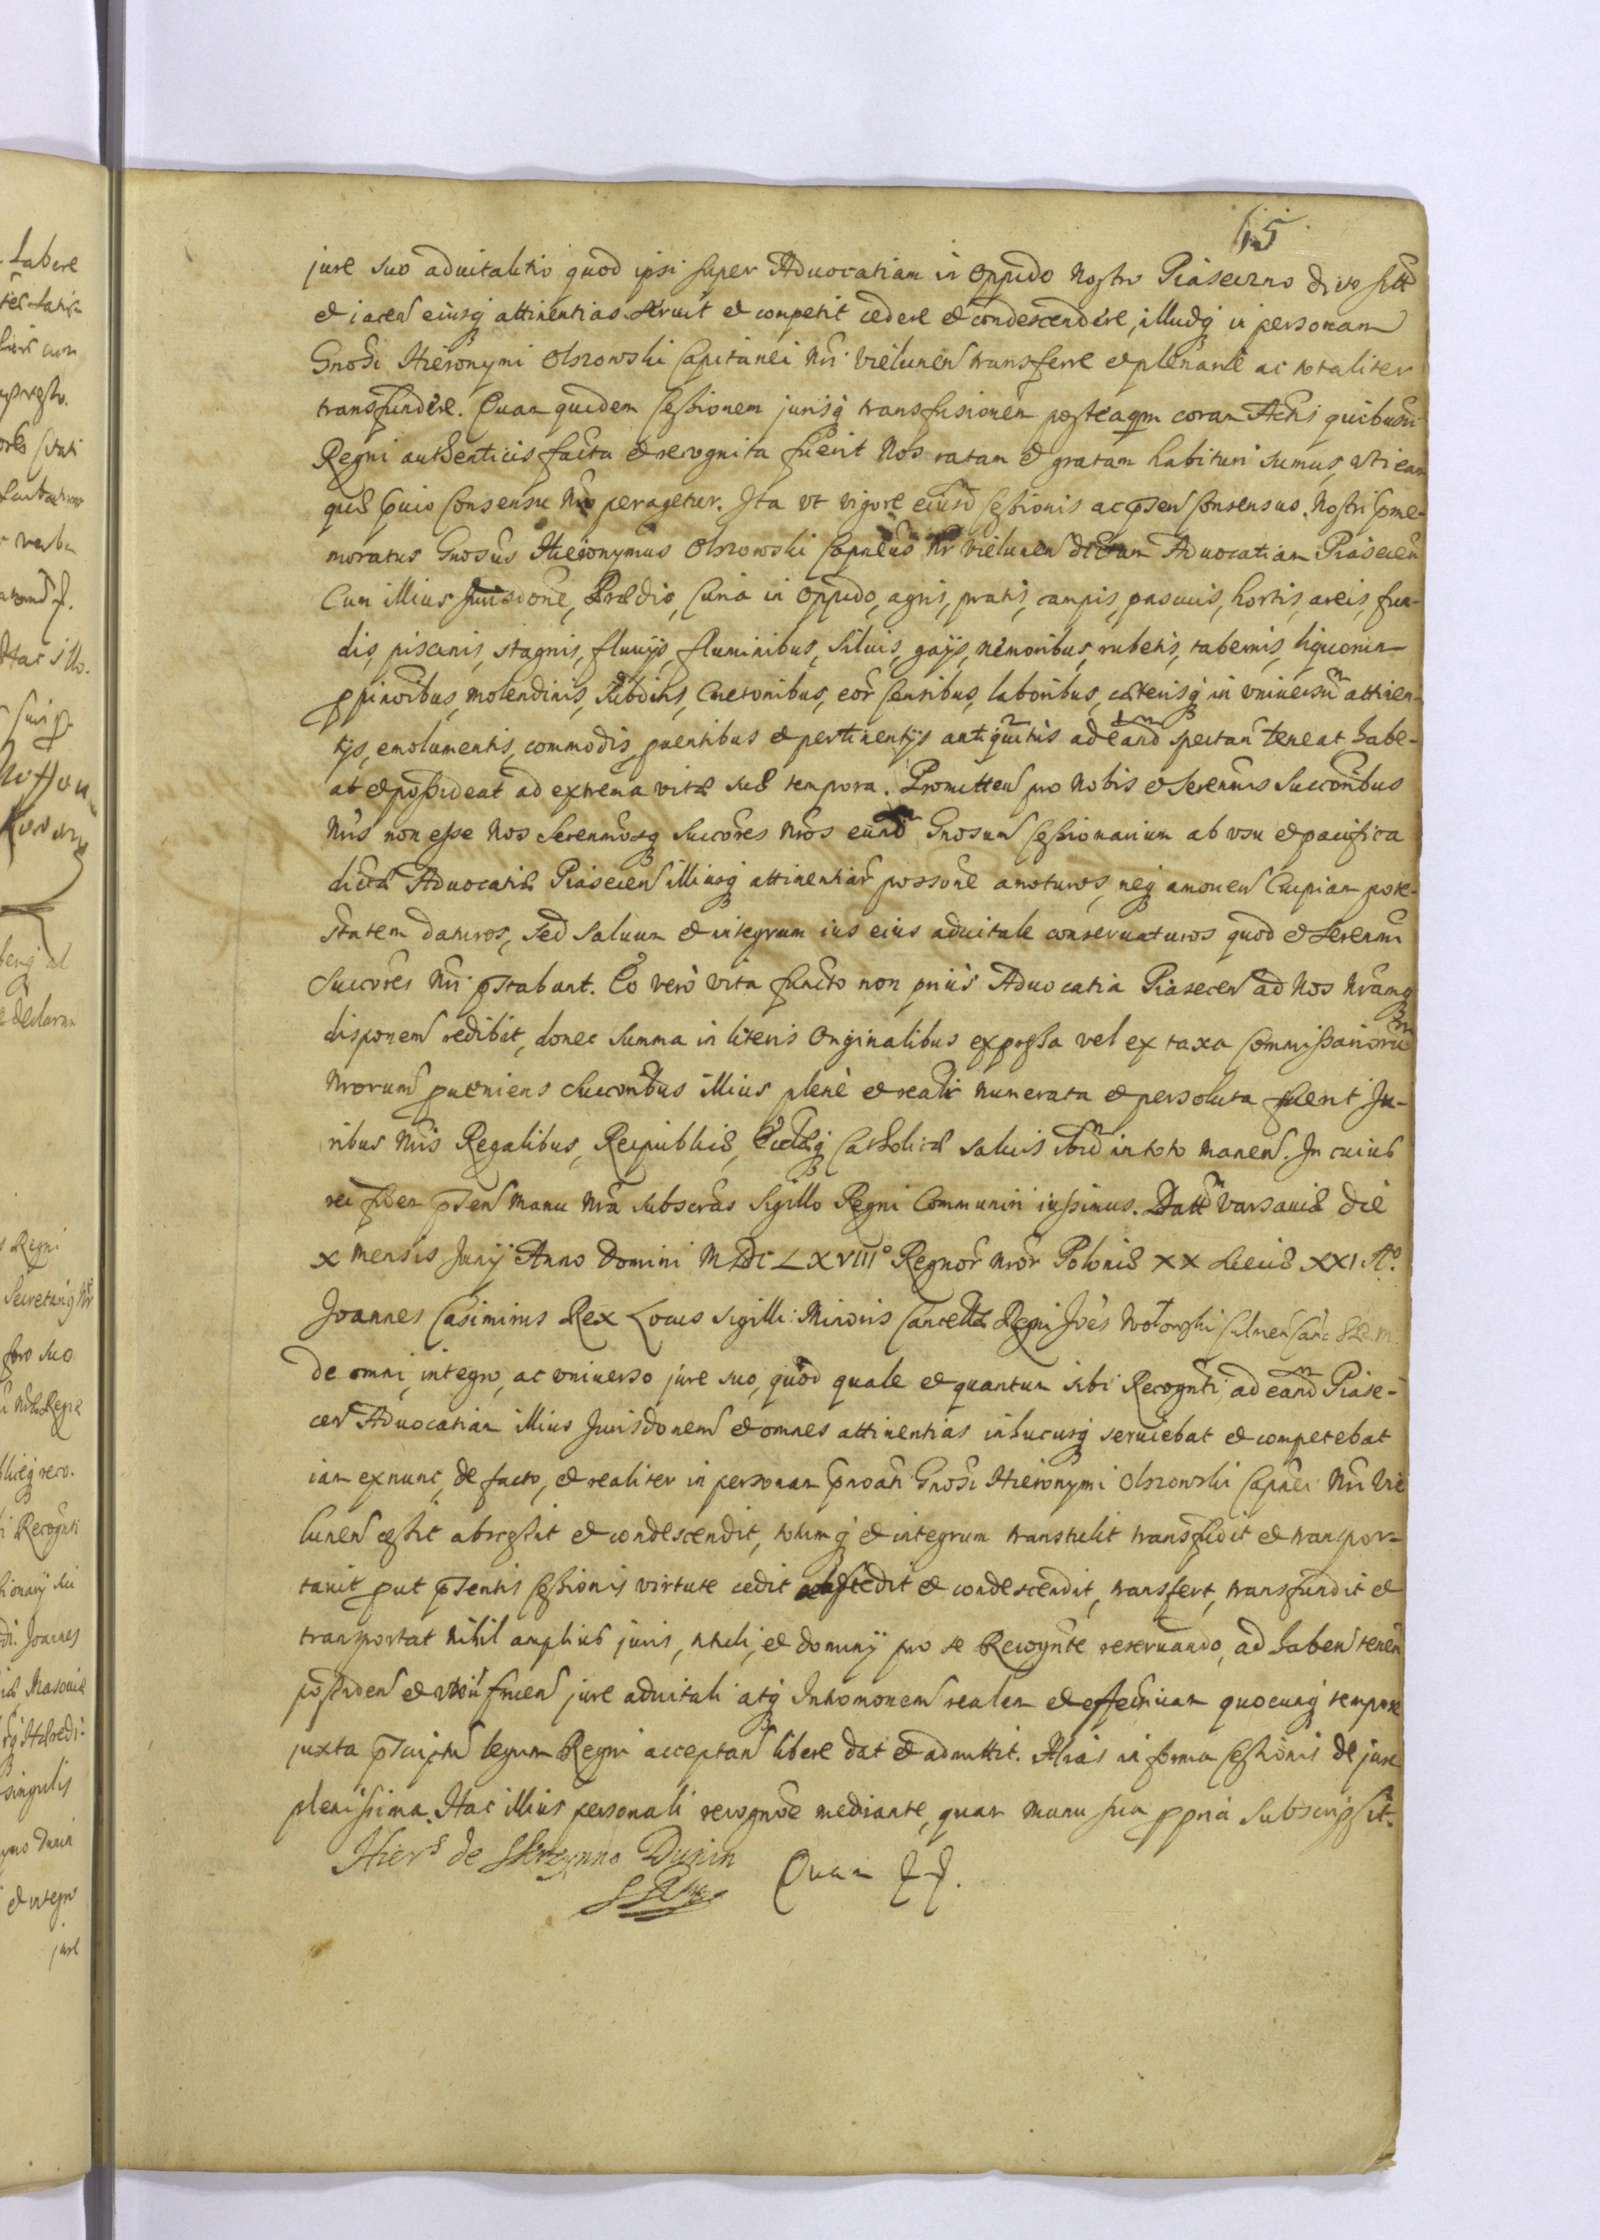 15
jure suo aduitalitio quod ipsi super Aduocatiam in Oppido Nostro Piaseczno dicto sitt
et iacen eiusq attinentias seruit et competit cedere et condescendere, illudq in personam
Gnosi Hieronymi Olszowski Capitanei Nri Vielunen transferre et plenarie ac totaliter
transfundere. Quam quidem Cessionem jurisq transfusionem posteaqm coram Actis quibusuis
Regni authenticis facta et recognita fuerit Nos ratam et gratam habituri sumus, vti eam
que Consensu Nro peragetur. Ita vt vigore eiusd Cessionis ac psen Consensus Nostri pme-
moratus Gnosus Hieronymus Olszowski Capneus Nr Vielunen dictam Aduocatiam Piasecen
Cum illius Jurisdone, Prædio, Curia in Oppido, agris, pratis, campis, pascuis, hortis, areis, fun-
dis, piscinis, stagnis, fluuijs, fluminibus, siluis, gaijs, nemoribus, rubetis, tabernis, liquorum
ppinoibus, molendinis, subditis, Cmetonibus, eor Censibus, laboribus, cæterisq in vniuersum attinen-
tijs, emolumentis, commodis, puentibus et pertinentijs antiquitus ad eand spectan teneat, habe-
at et possideat ad extrema vitæ suæ tempora. Promitten pro Nobis et Serenmis Succoribus
Nris non esse Nos Serenmosq Succores Nros eund Gnosum Cessionarium ab vsu et pacifica
dictæ Aduocatiæ Piasecen illiusq attinentiar possone amoturos, neq amouen Cuipiam pote-
statem daturos, sed saluum et integrum ius eius aduitale conseruaturos quod et Serenmi
Succores Nri pstabunt. Eo vero vita functo non prius Aduocatia Piasecen ad Nos Nramq
disponem redibit, donec summa in literis Originalibus expssa vel ex taxa Commissariorum
Nrorum pueniens Succoribus illius plene et realr numerata et persoluta fuerit Ju-
ribus Nris Regalibus, Reipublicæ, Ecclæq Catholicæ saluis ibid in toto manen. In cuius
rei fidem psen manu Nra subscras Sigillo Regni Communiri iussimus. Datt Varsauiæ die
X Mensis Junij Anno Domini MDCLXVIII° Regnor Nror Poloniæ XX Sueciæ XXI A°.
Joannes Casimirus Rex Locus Sigilli Minoris Cancellæ Regni Joes
de omni, integro, ac vniuerso jure suo, quod quale et quantum sibi Recognti ad eand Piase-
cen Aduocatiam illius Jurisdonem et omnes attinentias inhucusq seruiebat et competebat
iam exnunc, de facto, et realiter in personam pnoati Gnosi Hieronymi Olszowski Capnei Nri Vie
lunen cessit abscessit et condescendit, totumq et integrum transtulit transfudit et transpor-
tauit put psentis Cessionis virtute cedit abscedit et condescendit, transfert, transfundit et
transportat nihil amplius juris, tituli, et dominij pro se Recognte reseruando, ad haben tenen
possiden et vtifruen jure aduitali atq Intromonem realem et effectiuam quocunq tempore
juxta pscriptu legum Regni acceptan libere dat et admittit. Alias in forma Cessionis de jure
plenissima. Hac illius personali recognoe mediante, quam manu sua ppria subscripsit.
Hier de Skrzynno Dunin
Quam